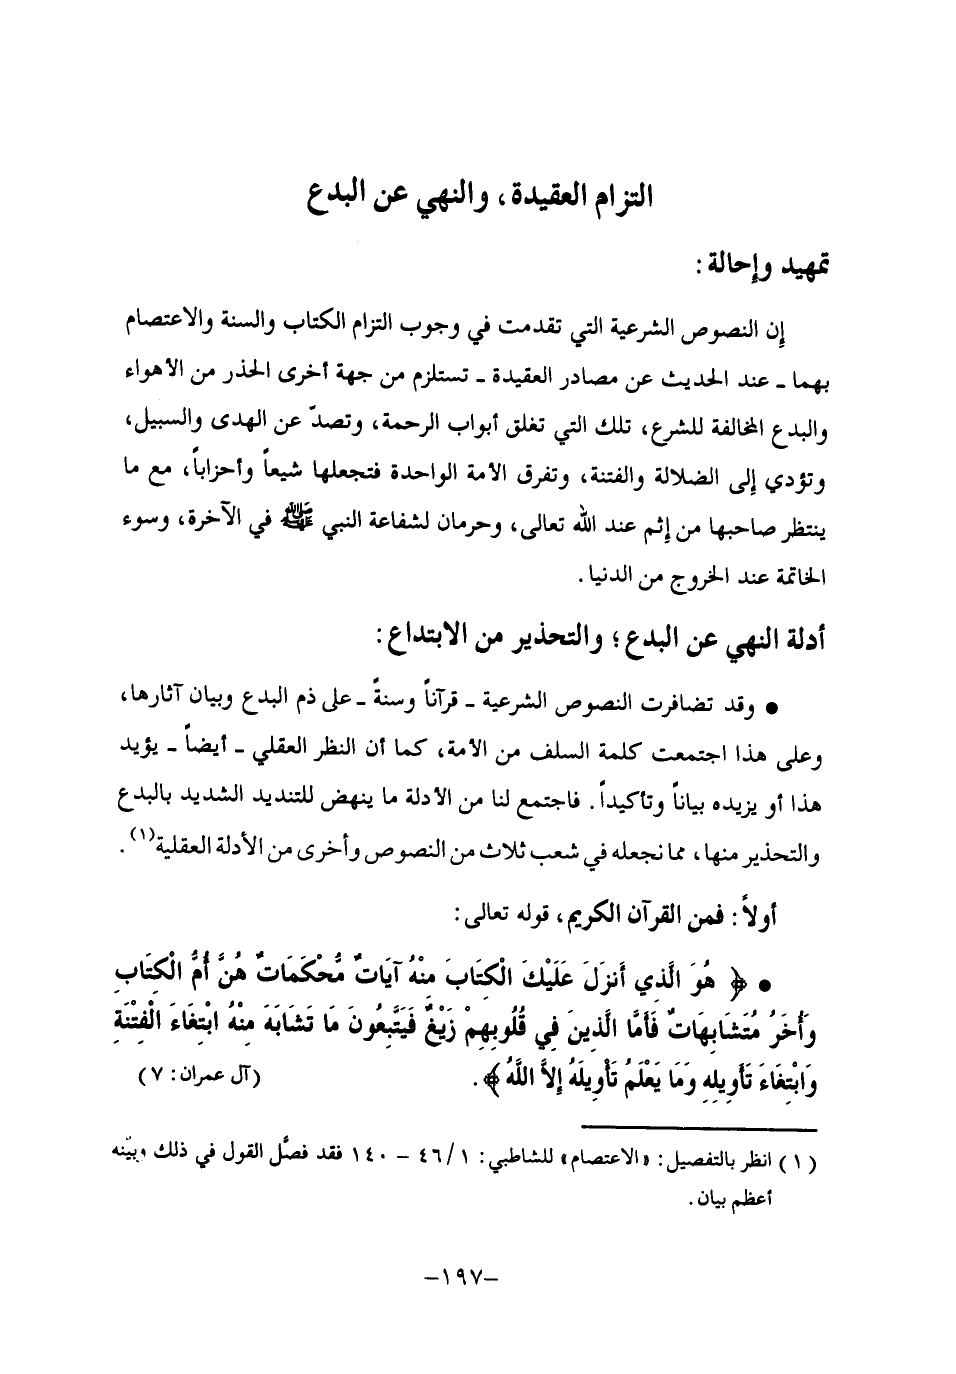 التزام العقيدة، والنهي عن البدع
تمهيد وإحالة :
إن النصوص الشرعية التي تقدمت في وجوب التزام الكتاب والسنة والاعتصام
بهما ـ عند الحديث عن مصادر العقيدة ـ تستلزم من جهة أخرى الحذر من الأهواء
والبدع المخالفة للشرع، تلك التي تغلق أبواب الرحمة، وتصدّ عن الهدى والسبيل،
وتؤدي إلى الضلالة والفتنة، وتفرق الأمة الواحدة فتجعلها شيعاً وأحزاباً، مع ما
ينتظر صاحبها من إثم عند الله تعالى، وحرمان لشفاعة النبي ﷺ في الآخرة، وسوء
الخاتمة عند الخروج من الدنيا .
أدلة النهي عن البدع ؛ والتحذير من الابتداع :
● وقد تضافرت النصوص الشرعية ـ قرآناً وسنةً ـ على ذم البدع وبيان آثارها،
وعلى هذا اجتمعت كلمة السلف من الأمة، كما أن النظر العقلي ـ أيضاً ـ يؤيد
هذا أو يزيده بياناً وتأكيداً. فاجتمع لنا من الأدلة ما ينهض للتنديد الشديد بالبدع
والتحذير منها، مما نجعله في شعب ثلاث من النصوص وأخرى من الأدلة العقلية(١) .
أولاً : فمن القرآن الكريم، قوله تعالى :
● ﴿ هُوَ الَّذِي أَنزَلَ عَلَيْكَ الْكِتَابَ مِنْهُ آيَاتٌ مُّحْكَمَاتٌ هُنَّ أُمُّ الْكِتَابِ
وَأُخَرُ مُتَشَابِهَاتٌ فَأَمَّا الَّذِينَ فِي قُلُوبِهِمْ زَيْغٌ فَيَتَّبِعُونَ مَا تَشَابَهَ مِنْهُ ابْتِغَاءَ الْفِتْنَةِ
وَابْتِغَاءَ تَأْوِيلِهِ وَمَا يَعْلَمُ تَأْوِيلَهُ إِلاَّ اللَّهُ ﴾ . (آل عمران : ٧ )
(١) انظر بالتفصيل : «الاعتصام» للشاطبي : ١/ ٤٦ – ١٤٠ فقد فصَّل القول في ذلك وبيّنه
أعظم بيان .
–١٩٧–